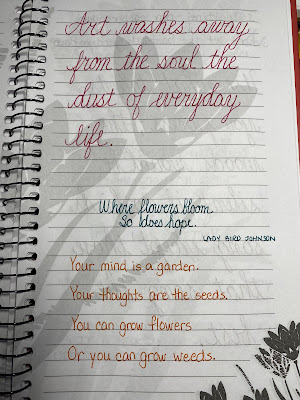 Art washes away
from the soul the
dust of everyday
life.
Where flowers bloom
So does hope.
LADY BIRD JOHNSON
Your mind is a garden.
Your thoughts are the seeds.
You can grow flowers
Or you can grow weeds.